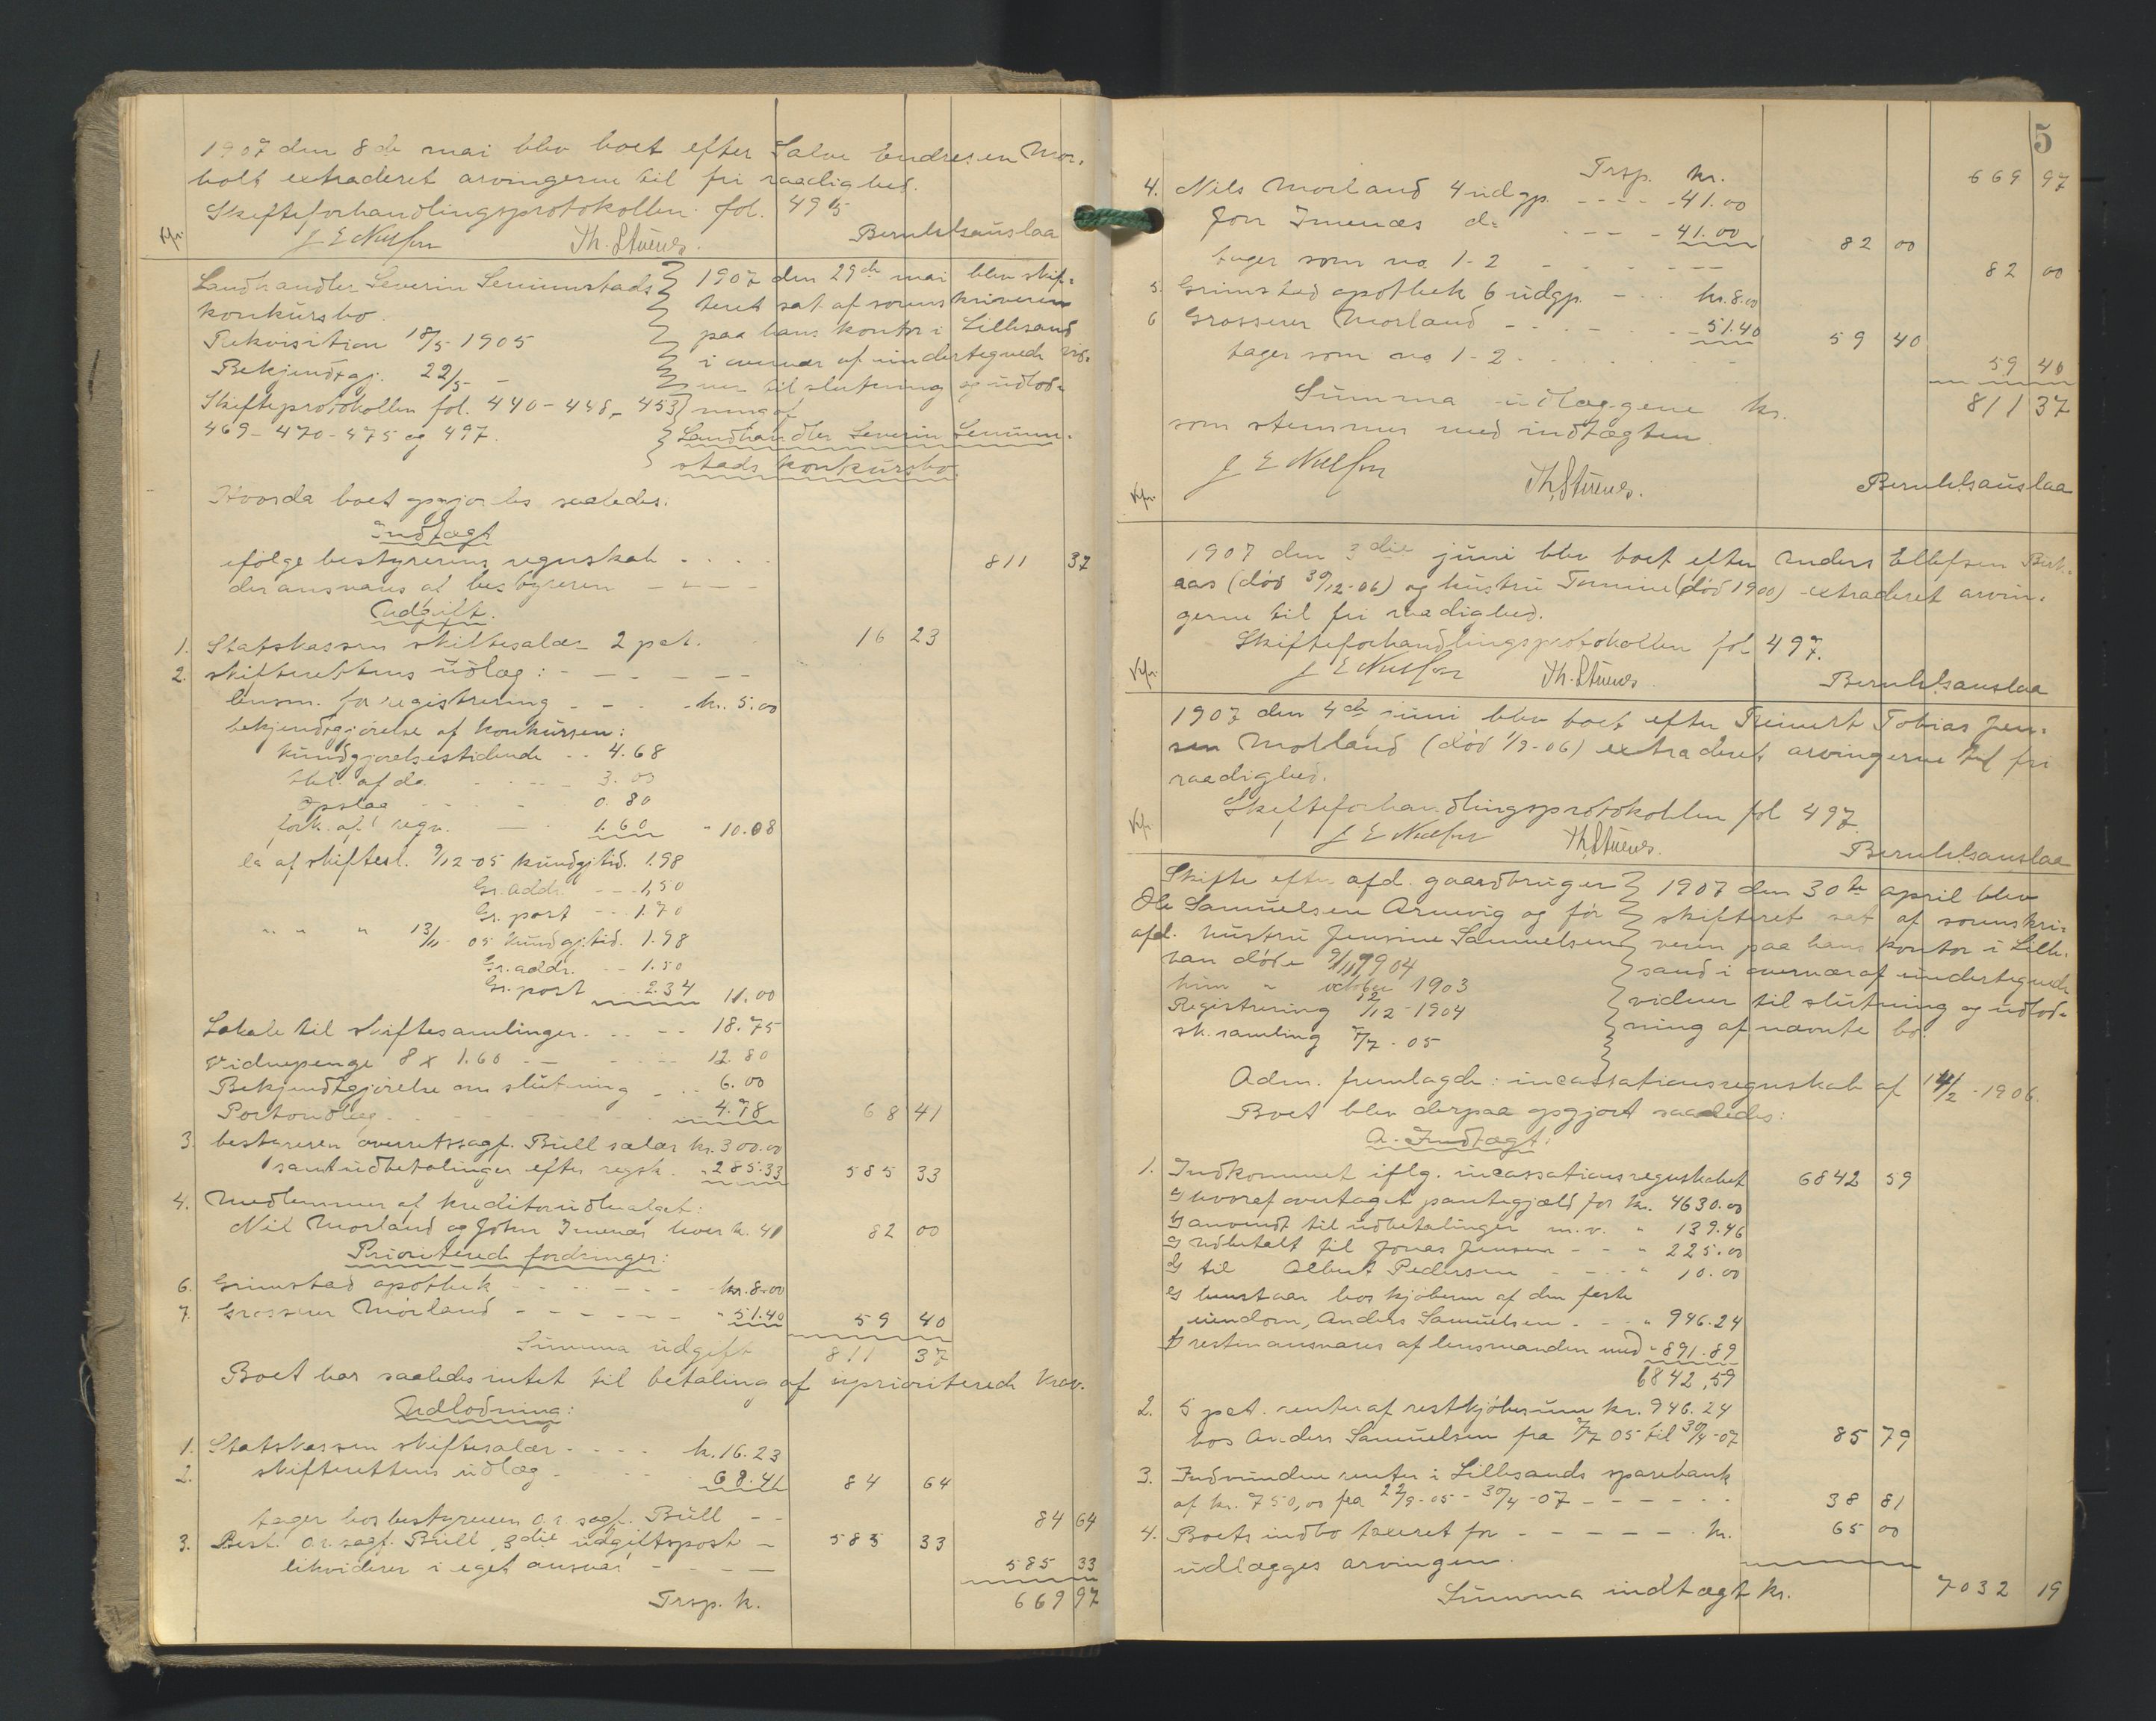 1907 den 8de mai blev boet efter Salve Endresen Mor-
holt extraderet arvingerne til fri raadighed.
Skifteforhandlingsprotokollen fol. 495
J E Nielsen Th. Stuevs. Beruldsauslaa
Landhandler Severin Senumstads
konkursbo.
Rekvisition 18/5 1905
Bekjendtgj. 22/5 -
Skifteprotokollen fol. 440-448, 453
469-470-475 og 497.
1907 den 29de mai blev skif-
teret sat af sorenskriveren
paa hans kontor i Lillesand
i overvær af undertegnede vid-
ner til slutning og udlod-
ning af
Landhandler Severin Senum-
stads konkursbo.
Hvorda boet opgjordes saaledes.
Indtægt
ifølge bestyrerens regnskab . . . . 811 37
der ansvares af bestyreren - - -
Udgift.
1. Statskassen skiftesalær 2 pct. 16 23
2. skifterettens udlæg: - - - - -
lensm. for registrering - - - kr. 5.00
bekjendtgjørelse af konkursen:
Kundgjørelsestidende - - 4.68
Bet. af do - - - 3.00
Opslag - - - 0.80
fork. af regn. - - 1.60 " 10.08
la af skiftesl. 9/12-05 Kundgj.tid. 1.98
Gr. addr. - - - 1,50
Gr. post - - 1.70
" " " 13/11 05 Kundgj.tid. 1.98
Gr. addr. - - 1.50
Gr. post 2.34 11.00
Lokale til skiftesamlinger - - - - 18.75
Vidnepenge 8 x 1.60 - - - - 12.80
Bekjendtgjørelse om slutning - - - 6.00
Portoudlæg - - - - 4.78 68 41
3. bestyreren overretssagf. Büll salær kr. 300.00
samt udbetalinger efter regsk. " 285.33 585 33
4. Medlemmer af kreditorudvalget:
Nil Morland og John Imenæs hver kr. 41 82 00
Prioriterede fordringer:
6. Grimstad apothek - - - - - - kr. 8.00
7. Grosserer Mörland - - - - - - " 51.40 59 40
Summa udgift 811 37
Boet har saaledes intet til betaling af uprioriterede krav.
Udlodning:
1. Statskassen skiftesalær - - - - kr. 16.23
2. skifterettens udlæg - - - - 68.41 84 64
tager hos bestyreren o.r. sagf. Büll - - 84 64
3. Best. o.r. sagf. Büll, 3die udgiftspost - 585 33
likviderer i eget ansvar - - - - 585 33
Trsp. k. 669 97
5
Trsp. kr. 669 97
4. Nils Morland 4 udgp. - - - - 41.00
Jon Imenæs do - - - - 41.00 82 00
tager som no 1-2 - - - - - 82 00
5. Grimstad apothek 6 udgp. - - . kr. 8.00
6 Grosserer Morland - - - - - - 51.40 59 40
tager som no 1-2 - - - 59 40
Summa udlæggene kr. 811 37
som stemmer med indtægten.
J E Nielsen Th. Stuevs. Beruldsauslaa
1907 den 3die juni blev boet efter Anders Ellefsen Birk-
aas (død 30/12-06) og hustru Tomine (død 1900) extraderet arvin-
gerne til fri raadighed.
Skifteforhandlingsprotokollen fol 497.
J E Nielsen Th. Stuevs. Beruldsauslaa
1907 den 4de juni blev boet efter Reinert Tobias Jen-
sen Molland (død 1/9-06) extraderet arvingerne til fri
raadighed.
Skifteforhandlingsprotokollen fol 497
J E Nielsen Th. Stuevs. Beruldsauslaa
Skifte efter afd. gaardbruger
Ole Samuelsen Arnevig og før
afd. hustru Jensine Samuelsen
han døde 9/11 1904
hun " october 1903
Registrering 12/12-1904
sk. samling 7/7 - 05
1907 den 30te april blev
skifteret sat af sorenskri-
veren paa hans kontor i Lille-
sand i overvær af undertegnede
vidner til slutning og udlod-
ning af nævnte bo.
Adm. fremlagde: incassationsregnskab af 14/2-1906.
Boet blev derpaa opgjort saaledes:
A. Indtægt:
1. Indkommet iflg. incassationsregnskabet 6842 59
hvoraf overtaget pantegjæld for kr. 4630.00
anvendt til udbetalinger m.v. " 139.46
Udbetalt til Jonas Jensen - - " 225.00
til Albert Pedersen - - - " 10.00
henstaar hos kjøberen af den faste
eiendom, Anders Samuelsen - - " 946.24
resten ansvares af lensmanden med " 891.89
6842,59
2. 5 pct. renter af restkjøbesum kr. 946.24
hos Anders Samuelsen fra 7/7 05 til 30/4-07 85 79
3. Indvundne renter i Lillesands sparebank
af kr. 750,00 fra 22/9-05 - 30/4-07 - - - - - - 38 81
4. Boets indbo taxeret for - - - - - - kr. 65 00
udlægges arvingerne.
Summa indtægt kr. 7032 19